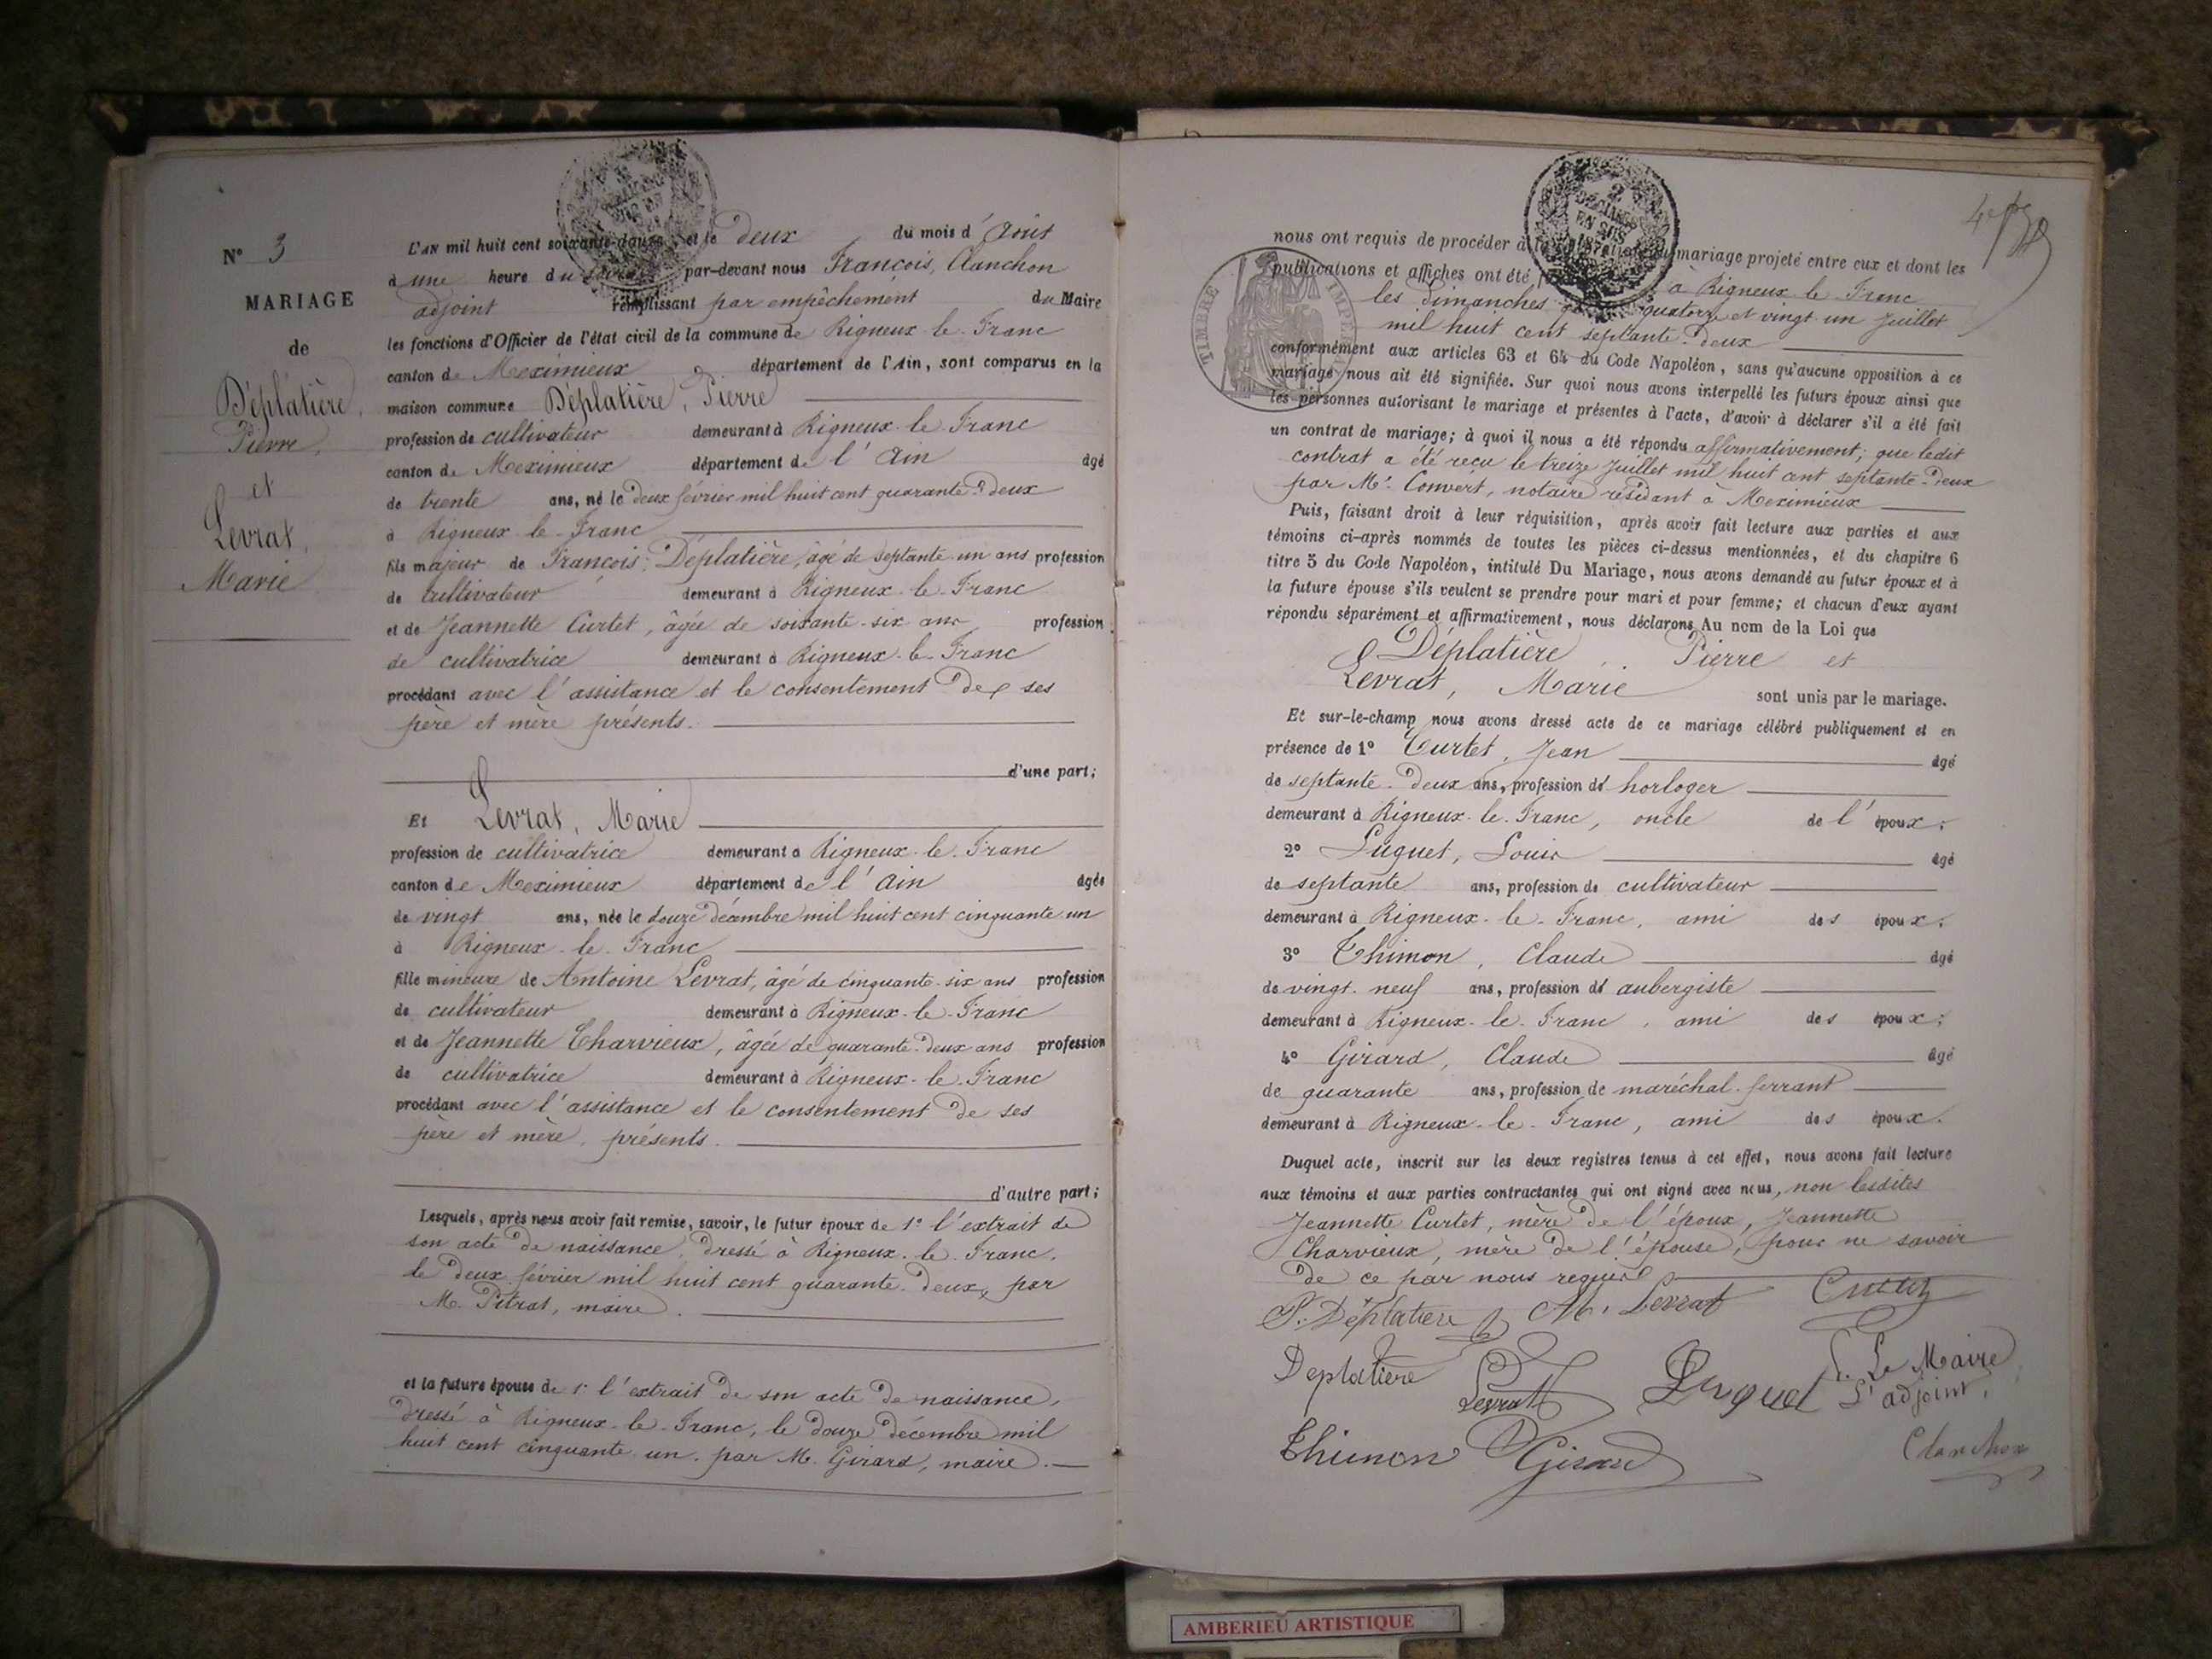 N° 3
MARIAGE
de
Déplatière,
Pierre,
et
Levrat,
Marie
L'AN mil huit cent soixante-douze, et le deux du mois d'Août
à une heure du par-devant nous François, Clanchon
adjoint remplissant par empêchement du Maire
les fonctions d'Officier de l'état civil de la commune de Rigneux-le-Franc
canton de Meximieux département de l'Ain, sont comparus en la
maison commune Déplatière, Pierre
profession de cultivateur demeurant à Rigneux-le-Franc
canton de Meximieux département de l'Ain âgé
de trente ans, né le deux février mil huit cent quarante-deux
à Rigneux-le-Franc
fils majeur de François Déplatière, âgé de septante-un ans profession
de cultivateur demeurant à Rigneux-le-Franc
et de Jeannette Curtet, âgée de soixante-six ans profession
de cultivatrice demeurant à Rigneux-le-Franc
procédant avec l'assistance et le consentement de ses
père et mère présents.
d'une part;
Et Levrat, Marie
profession de cultivatrice demeurant à Rigneux-le-Franc
canton de Meximieux département de l'Ain âgée
de vingt ans, née le douze décembre mil huit cent cinquante-un
à Rigneux-le-Franc
fille mineure de Antoine Levrat, âgé de cinquante-six ans profession
de cultivateur demeurant à Rigneux-le-Franc
et de Jeannette Charvieux, âgée de quarante-deux ans profession
de cultivatrice demeurant à Rigneux-le-Franc
procédant avec l'assistance et le consentement de ses
père et mère, présents.
d'autre part;
Lesquels, après nous avoir fait remise, savoir, le futur époux de 1° l'extrait de
son acte de naissance, dressé à Rigneux-le-Franc,
le deux février mil huit cent quarante-deux, par
M. Pitrat, maire.
et la future épouse de 1° l'extrait de son acte de naissance,
dressé à Rigneux-le-Franc, le douze décembre mil
huit cent cinquante-un, par M. Girard, maire.
2 DÉCIMES
EN SUS
TIMBRE IMPÉRIAL
nous ont requis de procéder à la célébration du mariage projeté entre eux et dont les
publications et affiches ont été à Rigneux-le-Franc
les dimanches quatorze et vingt-un Juillet
mil huit cent septante-deux
conformément aux articles 63 et 64 du Code Napoléon, sans qu'aucune opposition à ce
mariage nous ait été signifiée. Sur quoi nous avons interpellé les futurs époux ainsi que
les personnes autorisant le mariage et présentes à l'acte, d'avoir à déclarer s'il a été fait
un contrat de mariage; à quoi il nous a été répondu affirmativement; que ledit
contrat a été reçu le treize Juillet mil huit cent septante-deux
par Me. Convert, notaire résidant à Meximieux
Puis, faisant droit à leur réquisition, après avoir fait lecture aux parties et aux
témoins ci-après nommés de toutes les pièces ci-dessus mentionnées, et du chapitre 6
titre 5 du Code Napoléon, intitulé Du Mariage, nous avons demandé au futur époux et à
la future épouse s'ils veulent se prendre pour mari et pour femme; et chacun d'eux ayant
répondu séparément et affirmativement, nous déclarons Au nom de la Loi que
Déplatière, Pierre et
Levrat, Marie sont unis par le mariage.
Et sur-le-champ nous avons dressé acte de ce mariage célébré publiquement et en
présence de 1° Curtet, Jean âgé
de septante-deux ans, profession d'horloger
demeurant à Rigneux-le-Franc, oncle de l'époux;
2° Luquet, Louis âgé
de septante ans, profession de cultivateur
demeurant à Rigneux-le-Franc, ami des époux;
3° Thimon, Claude âgé
de vingt-neuf ans, profession d'aubergiste
demeurant à Rigneux-le-Franc, ami des époux;
4° Girard, Claude âgé
de quarante ans, profession de maréchal-ferrant
demeurant à Rigneux-le-Franc, ami des époux.
Duquel acte, inscrit sur les deux registres tenus à cet effet, nous avons fait lecture
aux témoins et aux parties contractantes qui ont signé avec nous, non lesdites
Jeannette Curtet, mère de l'époux, Jeannette
Charvieux, mère de l'épouse, pour ne savoir
de ce par nous requis
P. Déplatière M. Levrat Curtet
Deplatière Levrat Luquet P. Le Maire
L'adjoint,
Thimon Girard Clanchon
AMBERIEU ARTISTIQUE